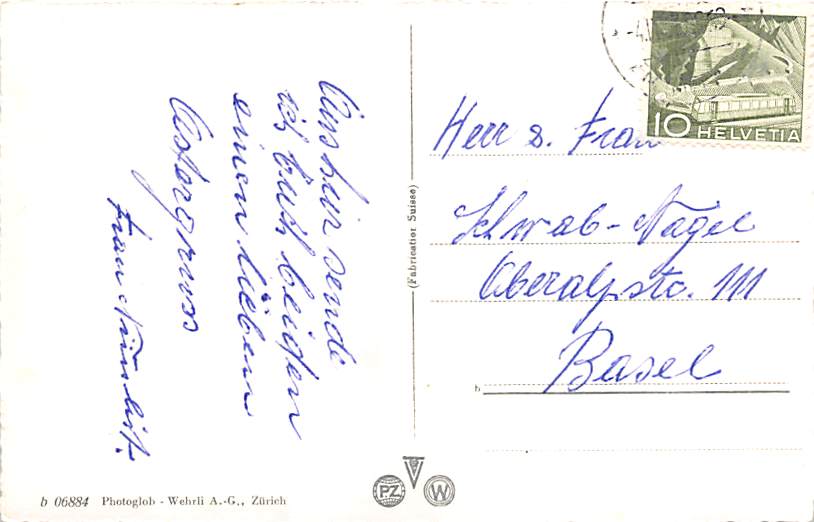 Von hier sende
ich Euch beiden
einen lieben
Ostergruss
Frau
Herr u. Frau
Schwab-Nagel
Oberalpstr. 111
Basel
10 HELVETIA
(Fabrication Suisse)
b
PZ
W
b 06884 Photoglob - Wehrli A.-G., Zürich